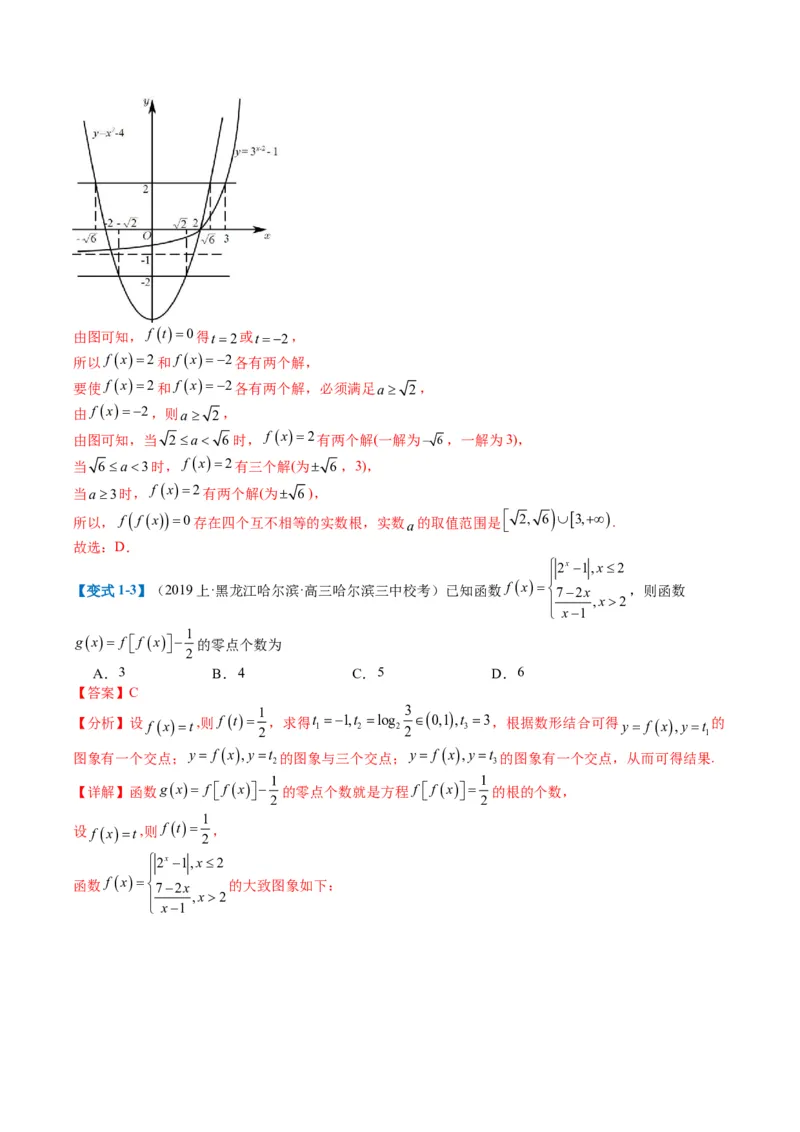 y
y=x²-4
y=3^{x-2}-1
2
-2 -√2 √2 2
-√6 O √6 3 x
-1
-2
由图可知，f(t)=0得t=2或t=−2，
所以f(x)=2和f(x)=−2各有两个解，
要使f(x)=2和f(x)=−2各有两个解，必须满足a≥ 2，
由f(x)=−2，则a≥ 2，
由图可知，当 2≤a< 6时，f(x)=2有两个解(一解为− 6，一解为3)，
当 6≤a<3时，f(x)=2有三个解(为± 6，3)，
当a≥3时，f(x)=2有两个解(为± 6)，
所以，f(f(x))=0存在四个互不相等的实数根，实数a的取值范围是[ 2, 6)∪[3,+∞).
故选：D．
【变式1-3】（2019上·黑龙江哈尔滨·高三哈尔滨三中校考）已知函数f(x)={|2^x−1|,x≤2; (7−2x)/(x−1),x>2，则函数
g(x)=f[f(x)]−1/2的零点个数为
A．3 B．4 C．5 D．6
【答案】C
【分析】设f(x)=t,则f(t)=1/2，求得t₁=−1,t₂=log₂ 3/2∈(0,1),t₃=3，根据数形结合可得y=f(x),y=t₁的
图象有一个交点；y=f(x),y=t₂的图象与三个交点；y=f(x),y=t₃的图象有一个交点，从而可得结果.
【详解】函数g(x)=f[f(x)]−1/2的零点个数就是方程f[f(x)]=1/2的根的个数，
设f(x)=t,则f(t)=1/2，
函数f(x)={|2^x−1|,x≤2; (7−2x)/(x−1),x>2的大致图象如下：